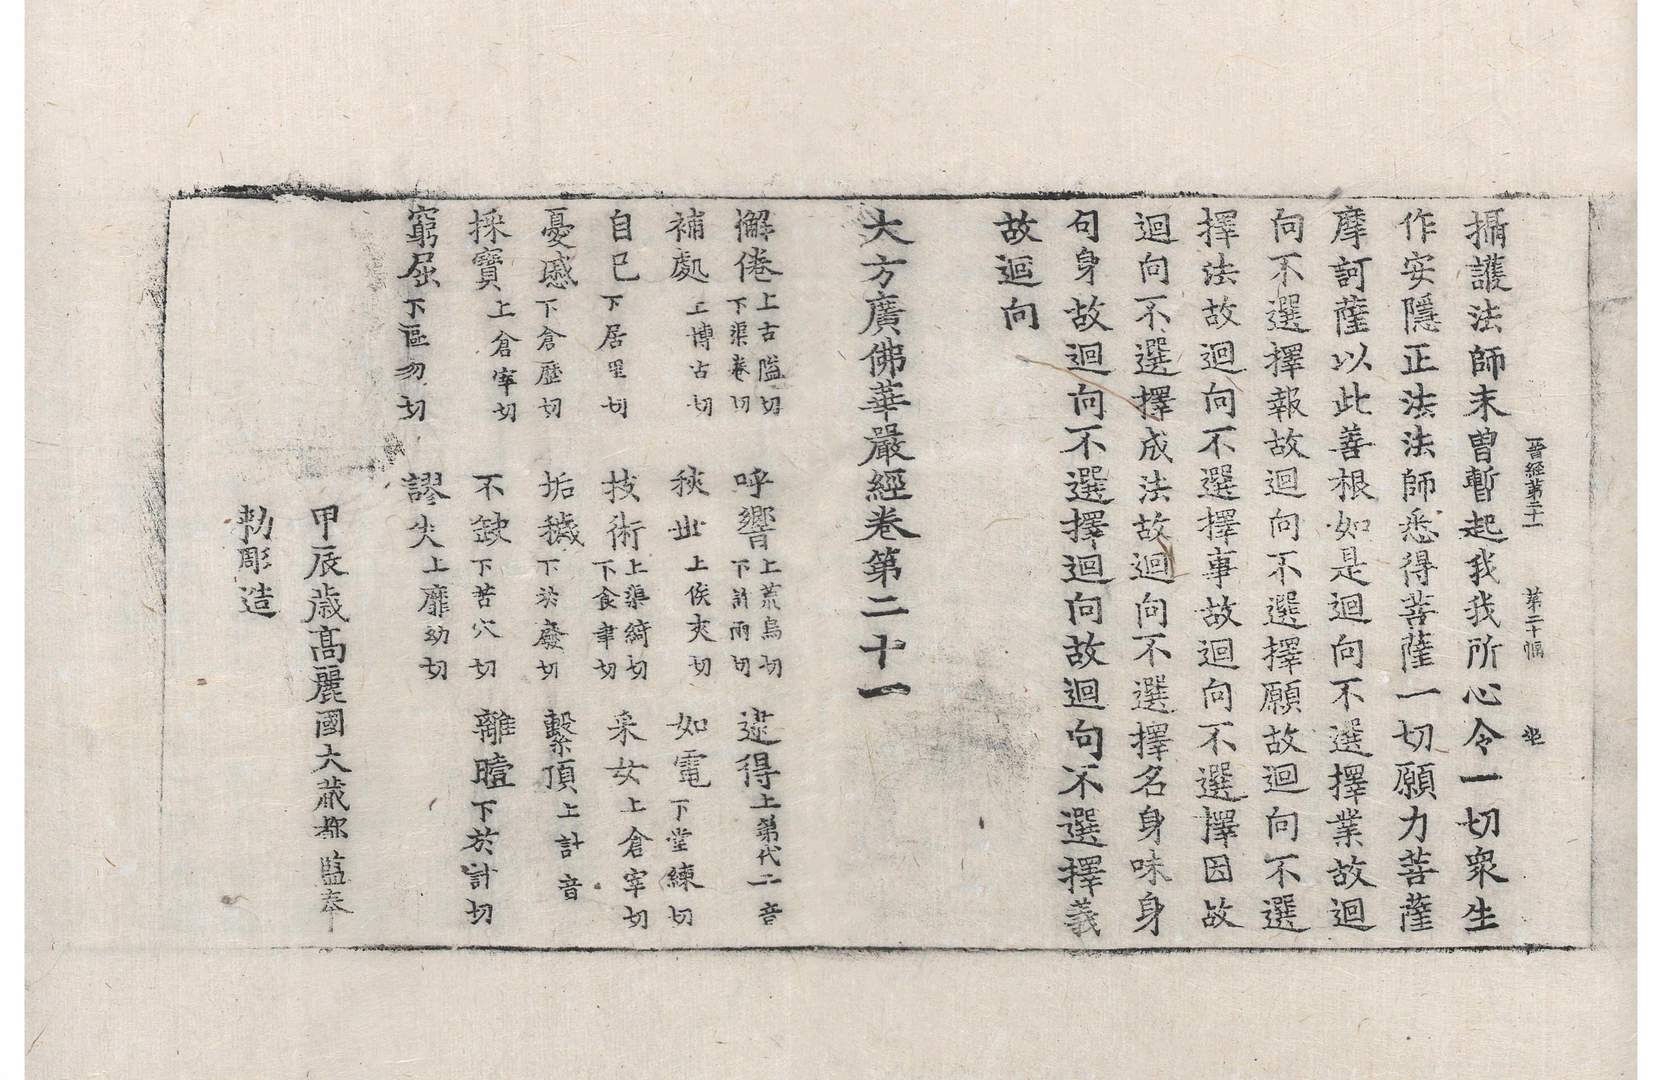 晉經第二十一 第二十幅 坐
攝護法師未曾暫起我我所心令一切衆生
作安隱正法法師悉得菩薩一切願力菩薩
摩訶薩以此善根如是迴向不選擇業故迴
向不選擇報故迴向不選擇願故迴向不選
擇法故迴向不選擇事故迴向不選擇因故
迴向不選擇成法故迴向不選擇名身味身
句身故迴向不選擇迴向故迴向不選擇義
故迴向
大方廣佛華嚴經卷第二十一
懈倦上古隘切下渠卷切 呼響上荒烏切下許兩切 逮得上第代二音
補處上博古切 狹世上侯夾切 如電下堂練切
自已下居里切 技術上渠綺切下食聿切 采女上倉宰切
憂慼下倉歷切 垢穢下於廢切 繫頂上計音
採寶上倉宰切 不缺下苦穴切 離曀下於計切
窮屈下區勿切 謬失上靡幼切
甲辰歲高麗國大藏都監奉
勅彫造